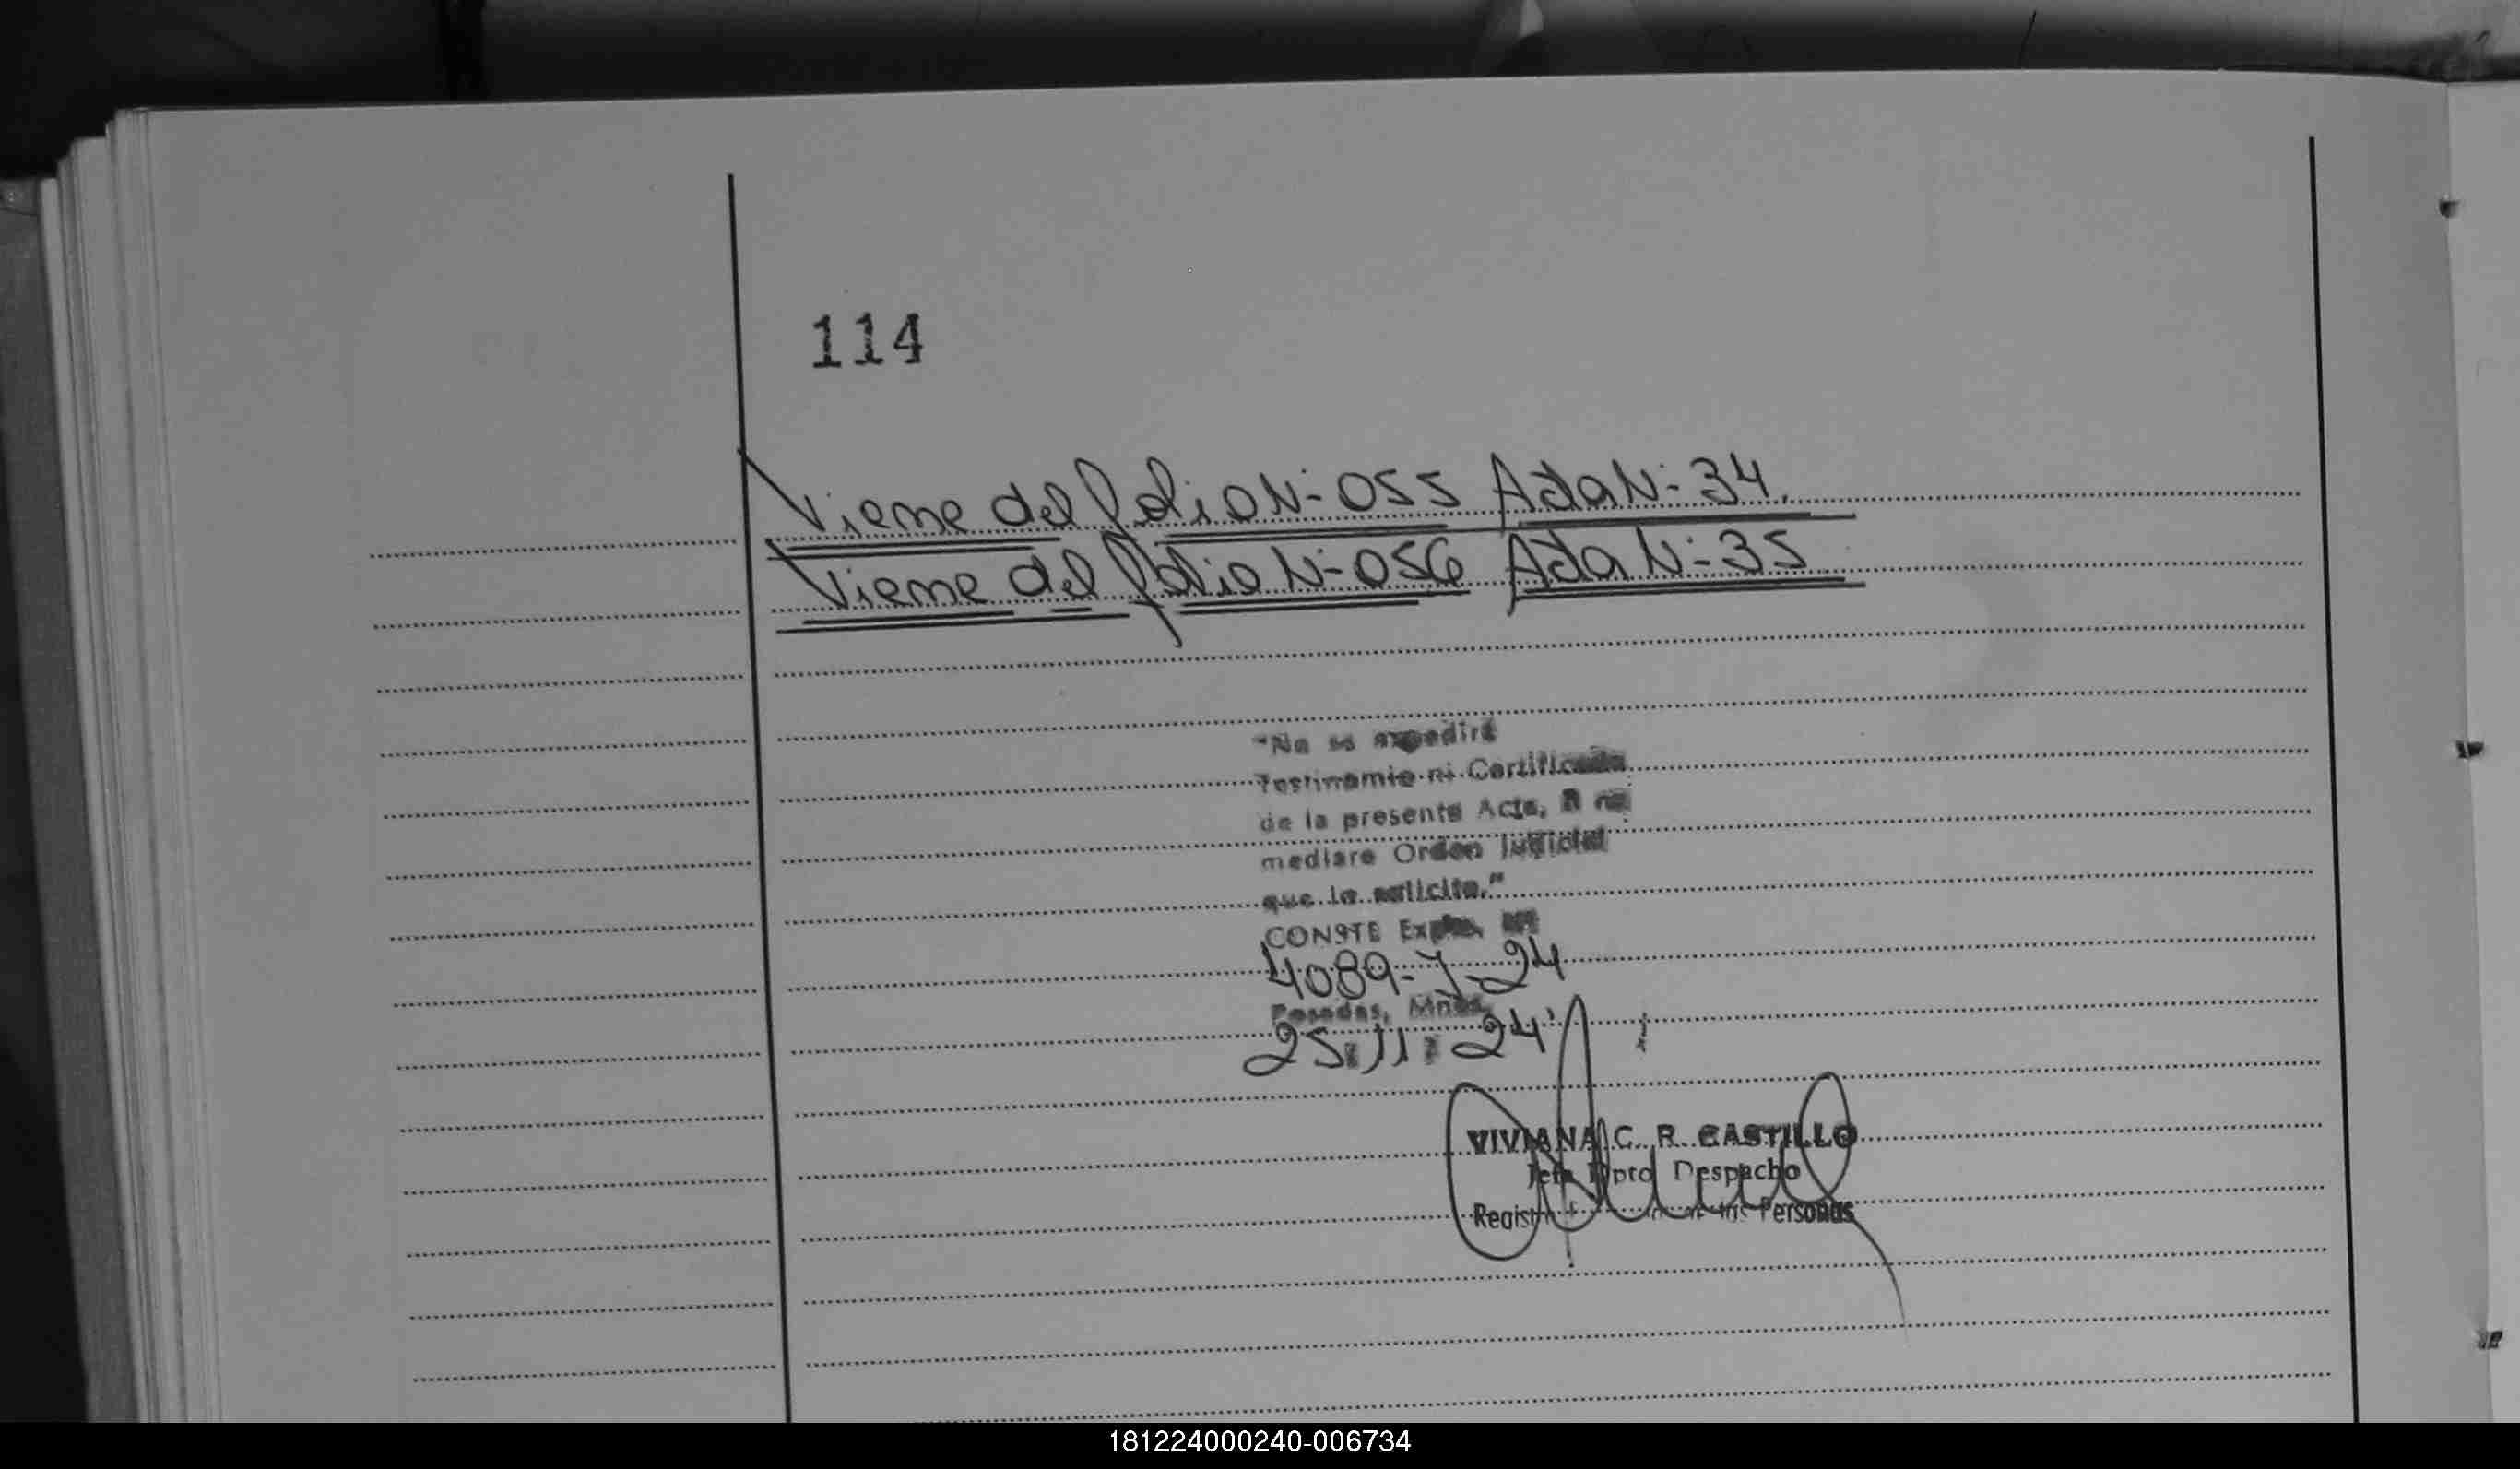 114
Viene del folio N- 055 Acta N- 34.
Viene del folio N- 056 Acta N- 35
"No se expedirá
Testimonio ni Certificado
de la presente Acta, si no
mediare Orden Judicial
que lo solicite."
CONSTE Expte. Nº
4089-J-24
Posadas, Mnes.
25 11 24
VIVIANA C. R. CASTILLO
Jefa Dpto Despacho
las Personas
181224000240-006734